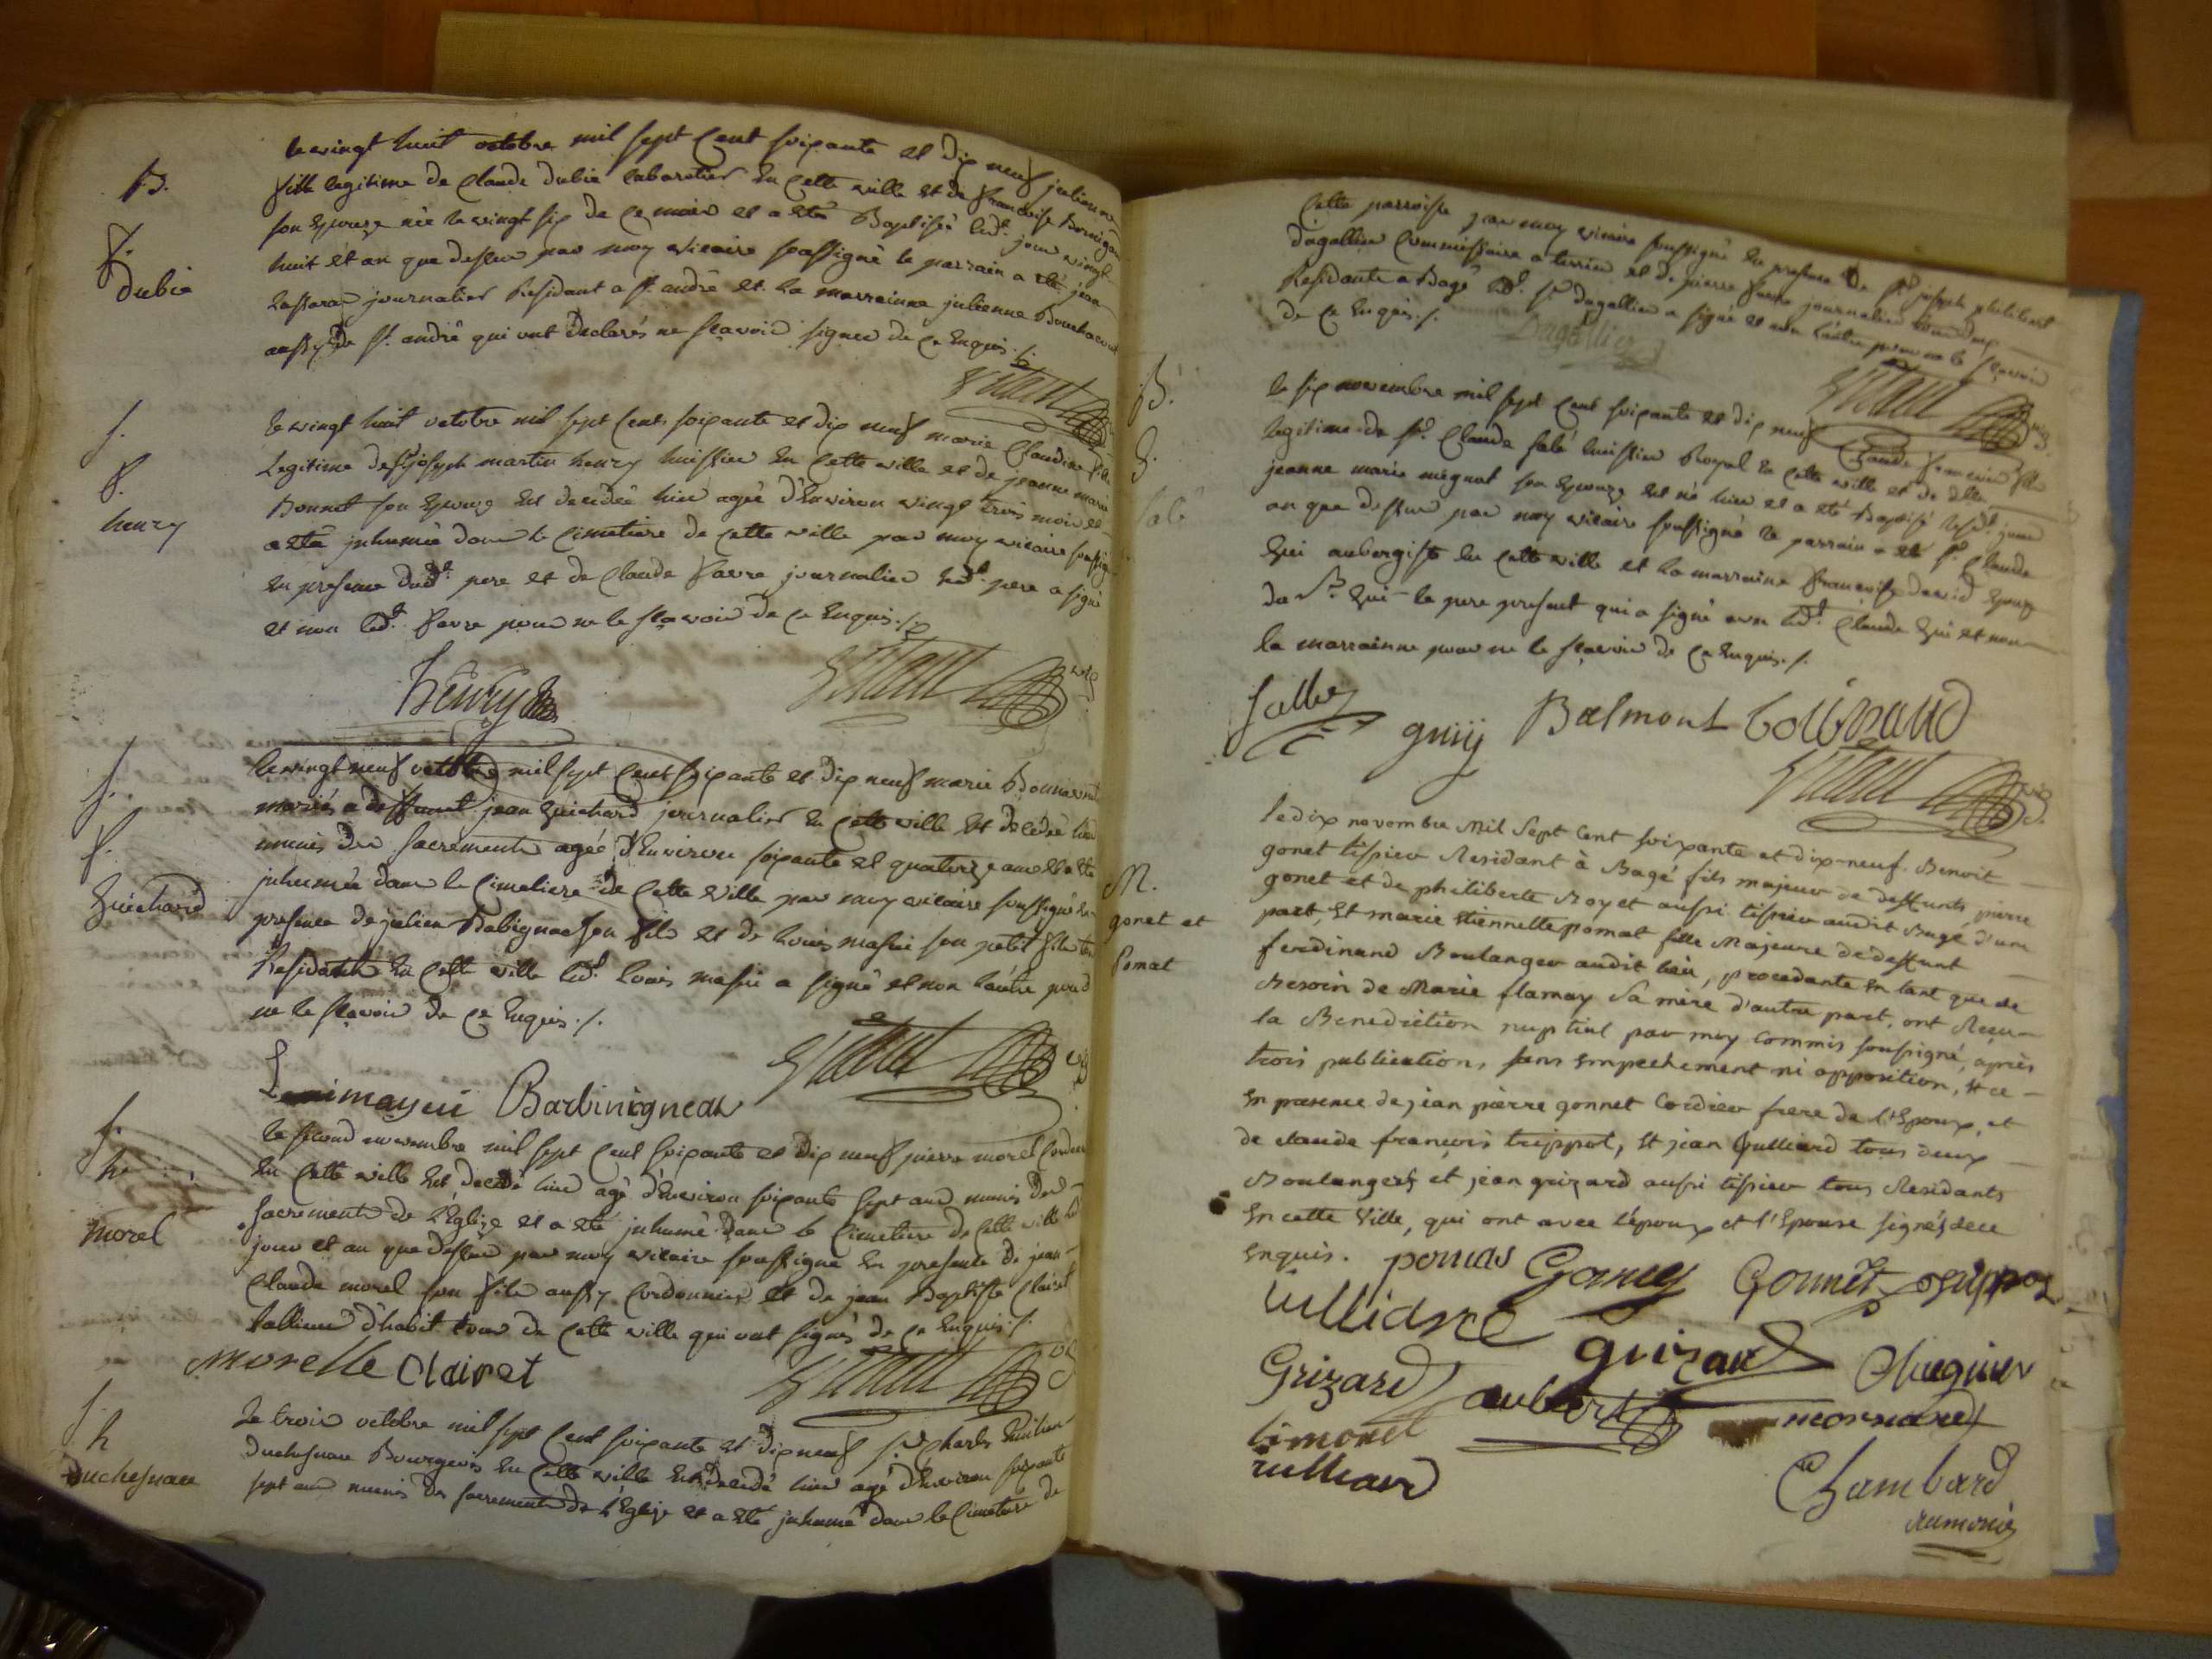 B.
f.
Dubié
le vingt huit octobre mil sept cent soixante et dix neuf julienne
fille legitime de claude dubié cabaretier en cette ville et de francoise
son epouze née le vingt six de ce mois et a été Baptisée led. jour vingt
huit et an que dessus par moy vicaire soussigné le parrain a été jean
journalier Residant a st. andré et la marrainne julienne
aussy de st. andré qui ont declarés ne scavoir signer de ce enquis ./.
f.
henry
le vingt huit octobre mil sept cent soixante et dix neuf marie claudine fille
legitime de sr. joseph martin henry huissier en cette ville et de jeanne marie
Bonnet son epouze est decedée hier agée d'environ vingt trois mois et
a été inhumée dans le cimetiere de cette ville par moy vicaire soussigné
en presence dud. pere et de claude favre journalier led. pere a signé
et non led. favre pour ne le scavoir de ce enquis ./.
henry
f.
guichard
le vingt neuf octobre mil sept cent soixante et dix neuf marie
mariée a deffunt jean guichard journalier en cette ville est decedée hier
munie des sacrements agée d'environ soixante et quatorze ans et a été
inhumée dans le cimetiere de cette ville par moy vicaire soussigné en
presence de julien son fils et de louis son petit fils
Residants en cette ville led. louis a signé et non l'autre pour
ne le scavoir de ce enquis ./.
h
morel
le second novembre mil sept cent soixante et dix neuf pierre morel
en cette ville est decedé hier agé d'environ soixante sept ans munis des
sacrements de l'Eglize et a été inhumé dans le cimetiere de cette ville
jour et an que dessus par moy vicaire soussigné en presence de jean
claude morel son fils aussy cordonnier et de jean Baptiste clairet
tallieur d'habit tous de cette ville qui ont signés de ce enquis ./.
morelle clairet
h
duchesnau
le trois octobre mil sept cent soixante et dix neuf sr. charles
duchesnau Bourgeois en cette ville est decedé hier agé d'environ soixante
sept ans munis des sacrements de l'Eglize et a été inhumé dans le cimetiere de
cette parroisse par moy vicaire soussigné en presence de sr. joseph philibert
dagallier commissaire a terrier et de pierre favre journalier
Residants a Bagé led. sr. dagallier a signé et non l'autre pour ne le scavoir
de ce enquis ./.
Dagallier
B.
g.
Salé
le six novembre mil sept cent soixante et dix neuf claude fils
legitime de sr. claude salé huissier Royal en cette ville et de dlle
jeanne marie mignot son epouze est né hier et a été Baptisé lesd. jour
an que dessus par moy vicaire soussigné le parrain a été sr. claude
gui aubergiste en cette ville et la marraine francoise david epouze
du sr. gui le pere present qui a signé avec led. claude gui et non
la marrainne pour ne le scavoir de ce enquis ./.
guiy Balmont
M.
gonet et
Pomat
le dix novembre Mil Sept Cent soixante et dix-neuf. Benoit
gonet tissier Residant à Bagé fils majeur de deffunts pierre
gonet et de philiberte Royet aussi tissier audit Bagé d'une
part, Et marie Etiennette pomat fille Majeure de deffunt
ferdinand Boulanger audit lieu, procedante en tant que de
Besoin de Marie flamay sa mère d'autre part, ont Recu
la Benediction nuptial par moy commis soussigné, après
trois publications, sans Empechement ni opposition, Et ce
En présence de jean pierre gonnet Cordier frere de l'Epoux, et
de claude francois trippot, Et jean Gulliard tous deux
Boulangers et jean grizard aussi tissier tous Residants
En cette Ville, qui ont avec l'époux et l'Epouse signés de ce
Enquis. pomas Gonney Gonnet
guizard
Grizard aubert
Limonet mornand
Chambard
aumonier